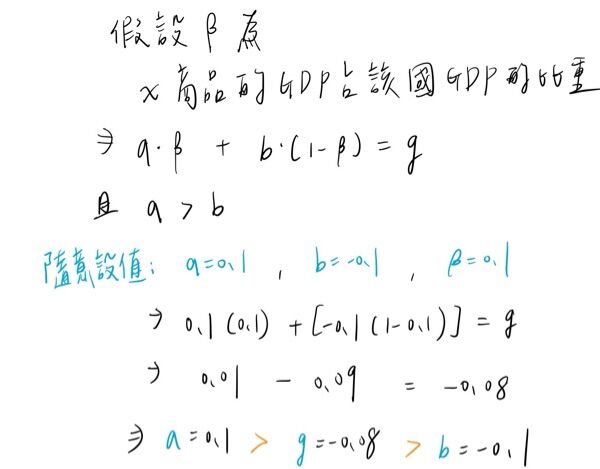 假設 β 為
x 商品的 GDP 占該國 GDP 的比重
⇒ a·β + b·(1-β) = g
且 a > b
隨意設值: a=0.1 , b=-0.1 , β=0.1
→ 0.1(0.1) + [-0.1(1-0.1)] = g
→ 0.01 - 0.09 = -0.08
⇒ a=0.1 > g=-0.08 > b=-0.1